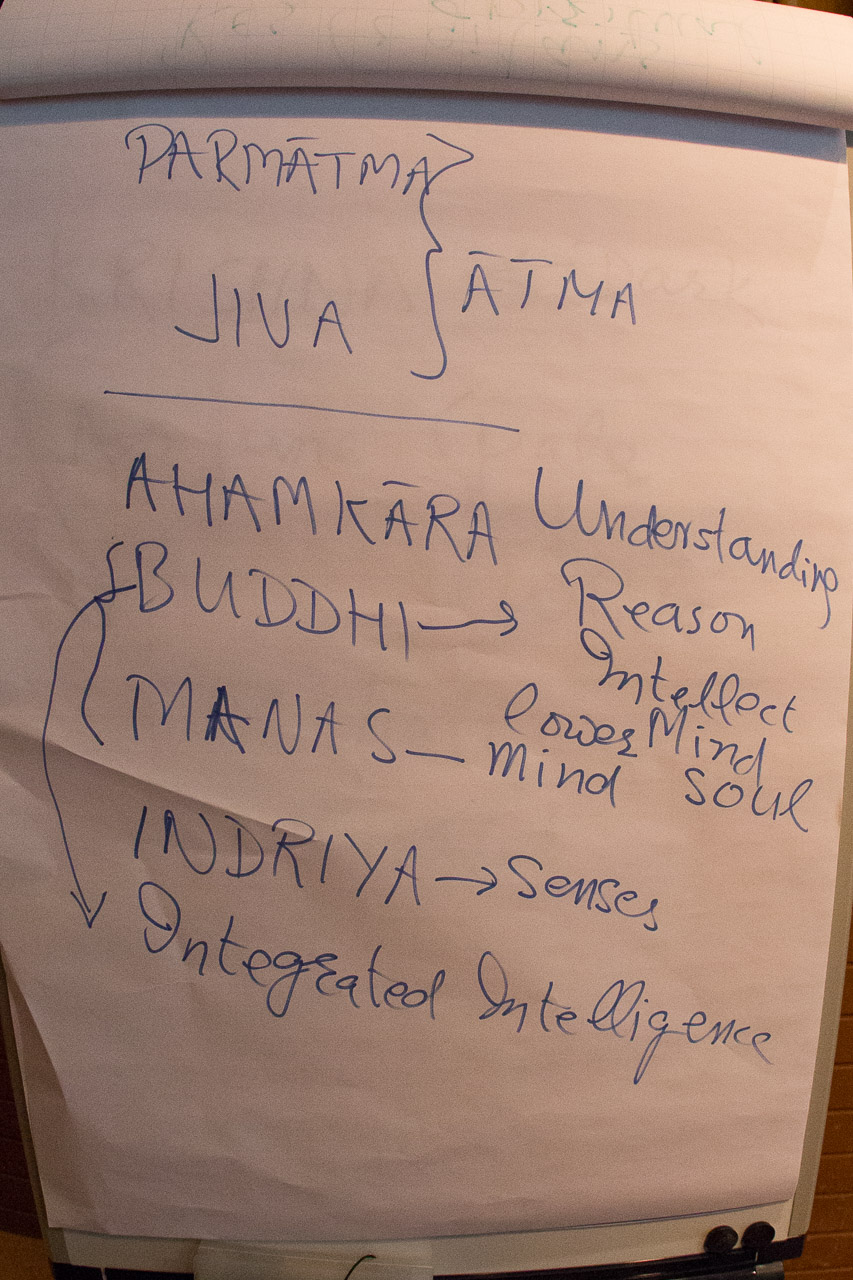 PARMĀTMA
JIVA
ĀTMA
AHAMKĀRA Understanding
BUDDHI → Reason
Intellect
MANAS — lower Mind
mind soul
INDRIYA → Senses
Integrated Intelligence